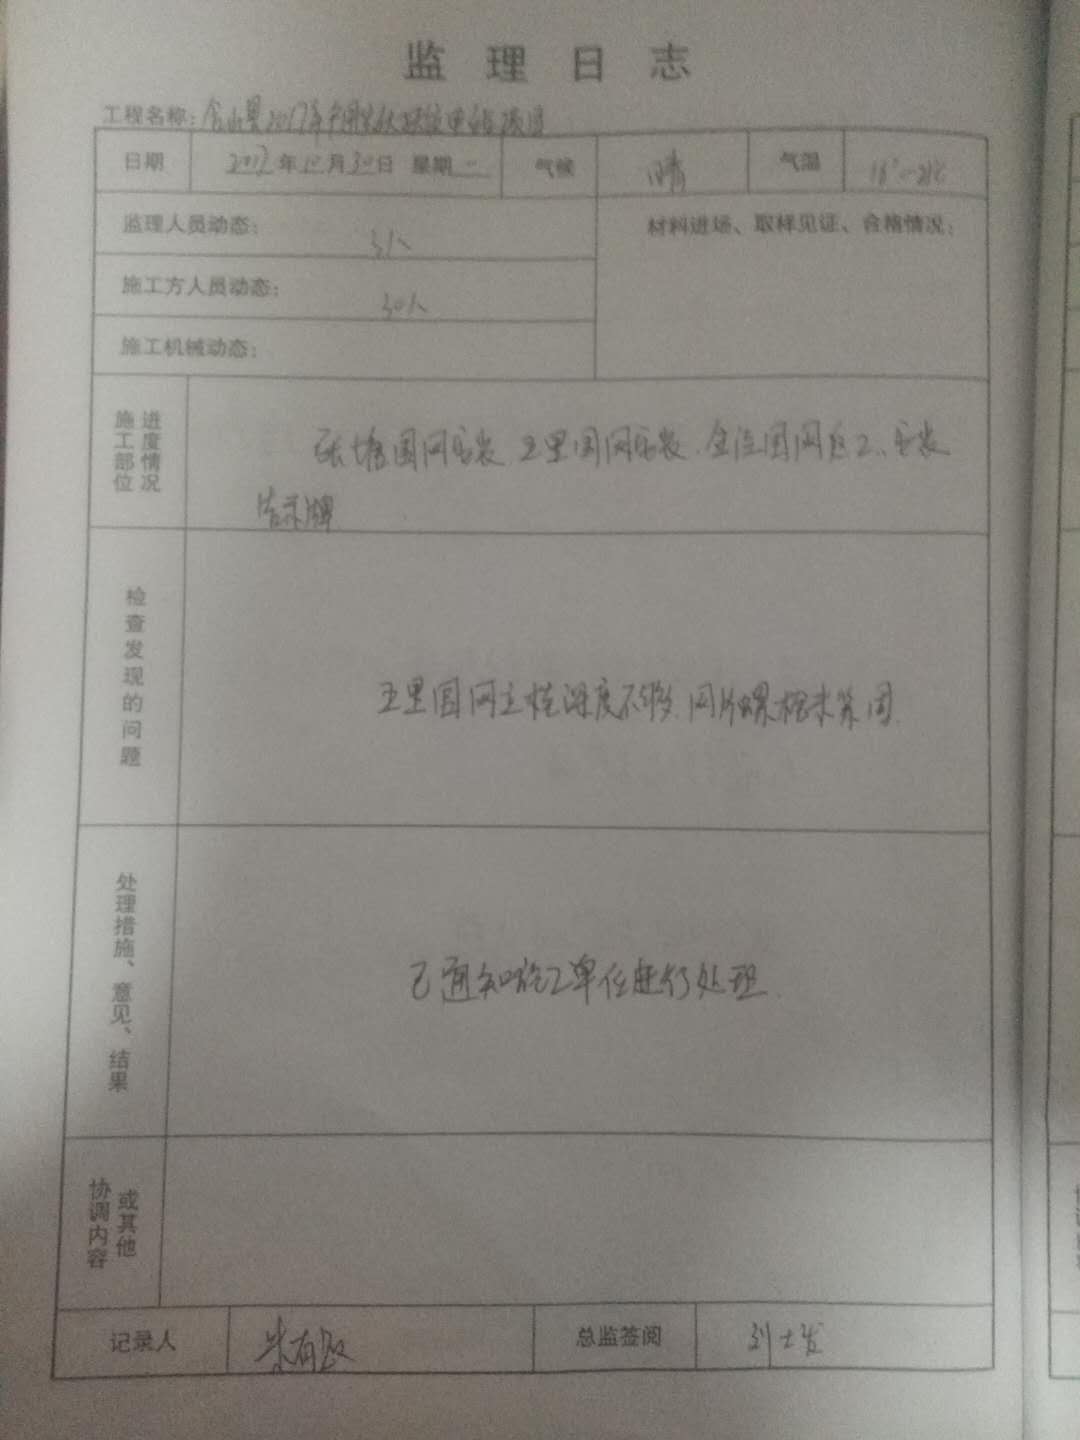 监理日志
工程名称：含山县2017年户用光伏电站项目
日期 2017年10月30日 星期一 气候 晴 气温 16°-21℃
监理人员动态： 3人 材料进场、取样见证、合格情况：
施工方人员动态： 30人
施工机械动态：
施工部位 进度情况 张塘围网安装 王里围网安装 围网 安装
告示牌
检查发现的问题 王里围网立柱深度不够 网片螺栓未紧固
处理措施、意见、结果 已通知施工单位进行处理
协调内容 或其他
记录人 总监签阅 刘士发